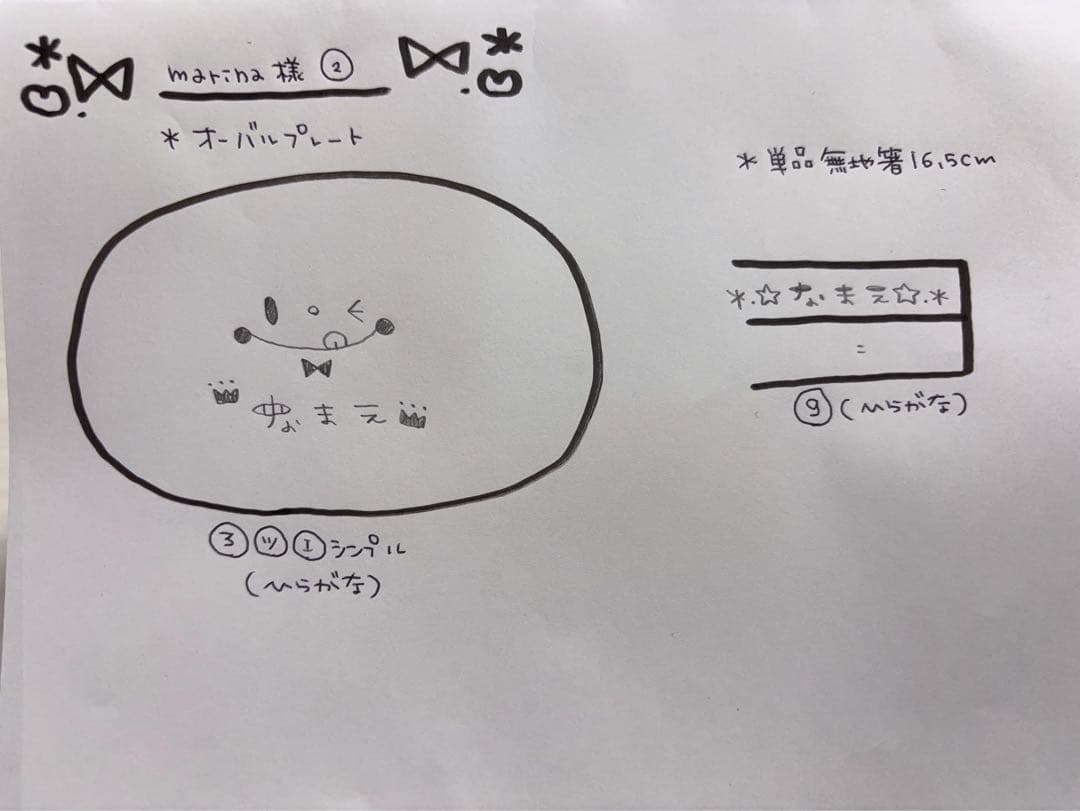 marina様 ②
* オーバルプレート
なまえ
③ ㋡ Ⓘ シンプル
(ひらがな)
* 単品 無地箸 16.5cm
*.☆なまえ☆.*
⑨ (ひらがな)